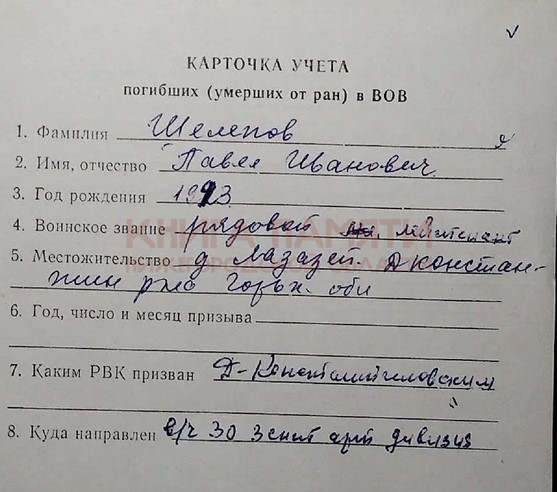 КАРТОЧКА УЧЕТА
погибших (умерших от ран) в ВОВ
1. Фамилия Шелепов
2. Имя, отчество Павел Иванович
3. Год рождения 1913
4. Воинское звание рядовой лейтенант
5. Местожительство д Лазазей. Д Констан-
тин р-на Горьк. обл
6. Год, число и месяц призыва
7. Каким РВК призван Д-Константиновским
8. Куда направлен в/ч 30 Зенит арт дивизия
КНИГА ПАМЯТИ